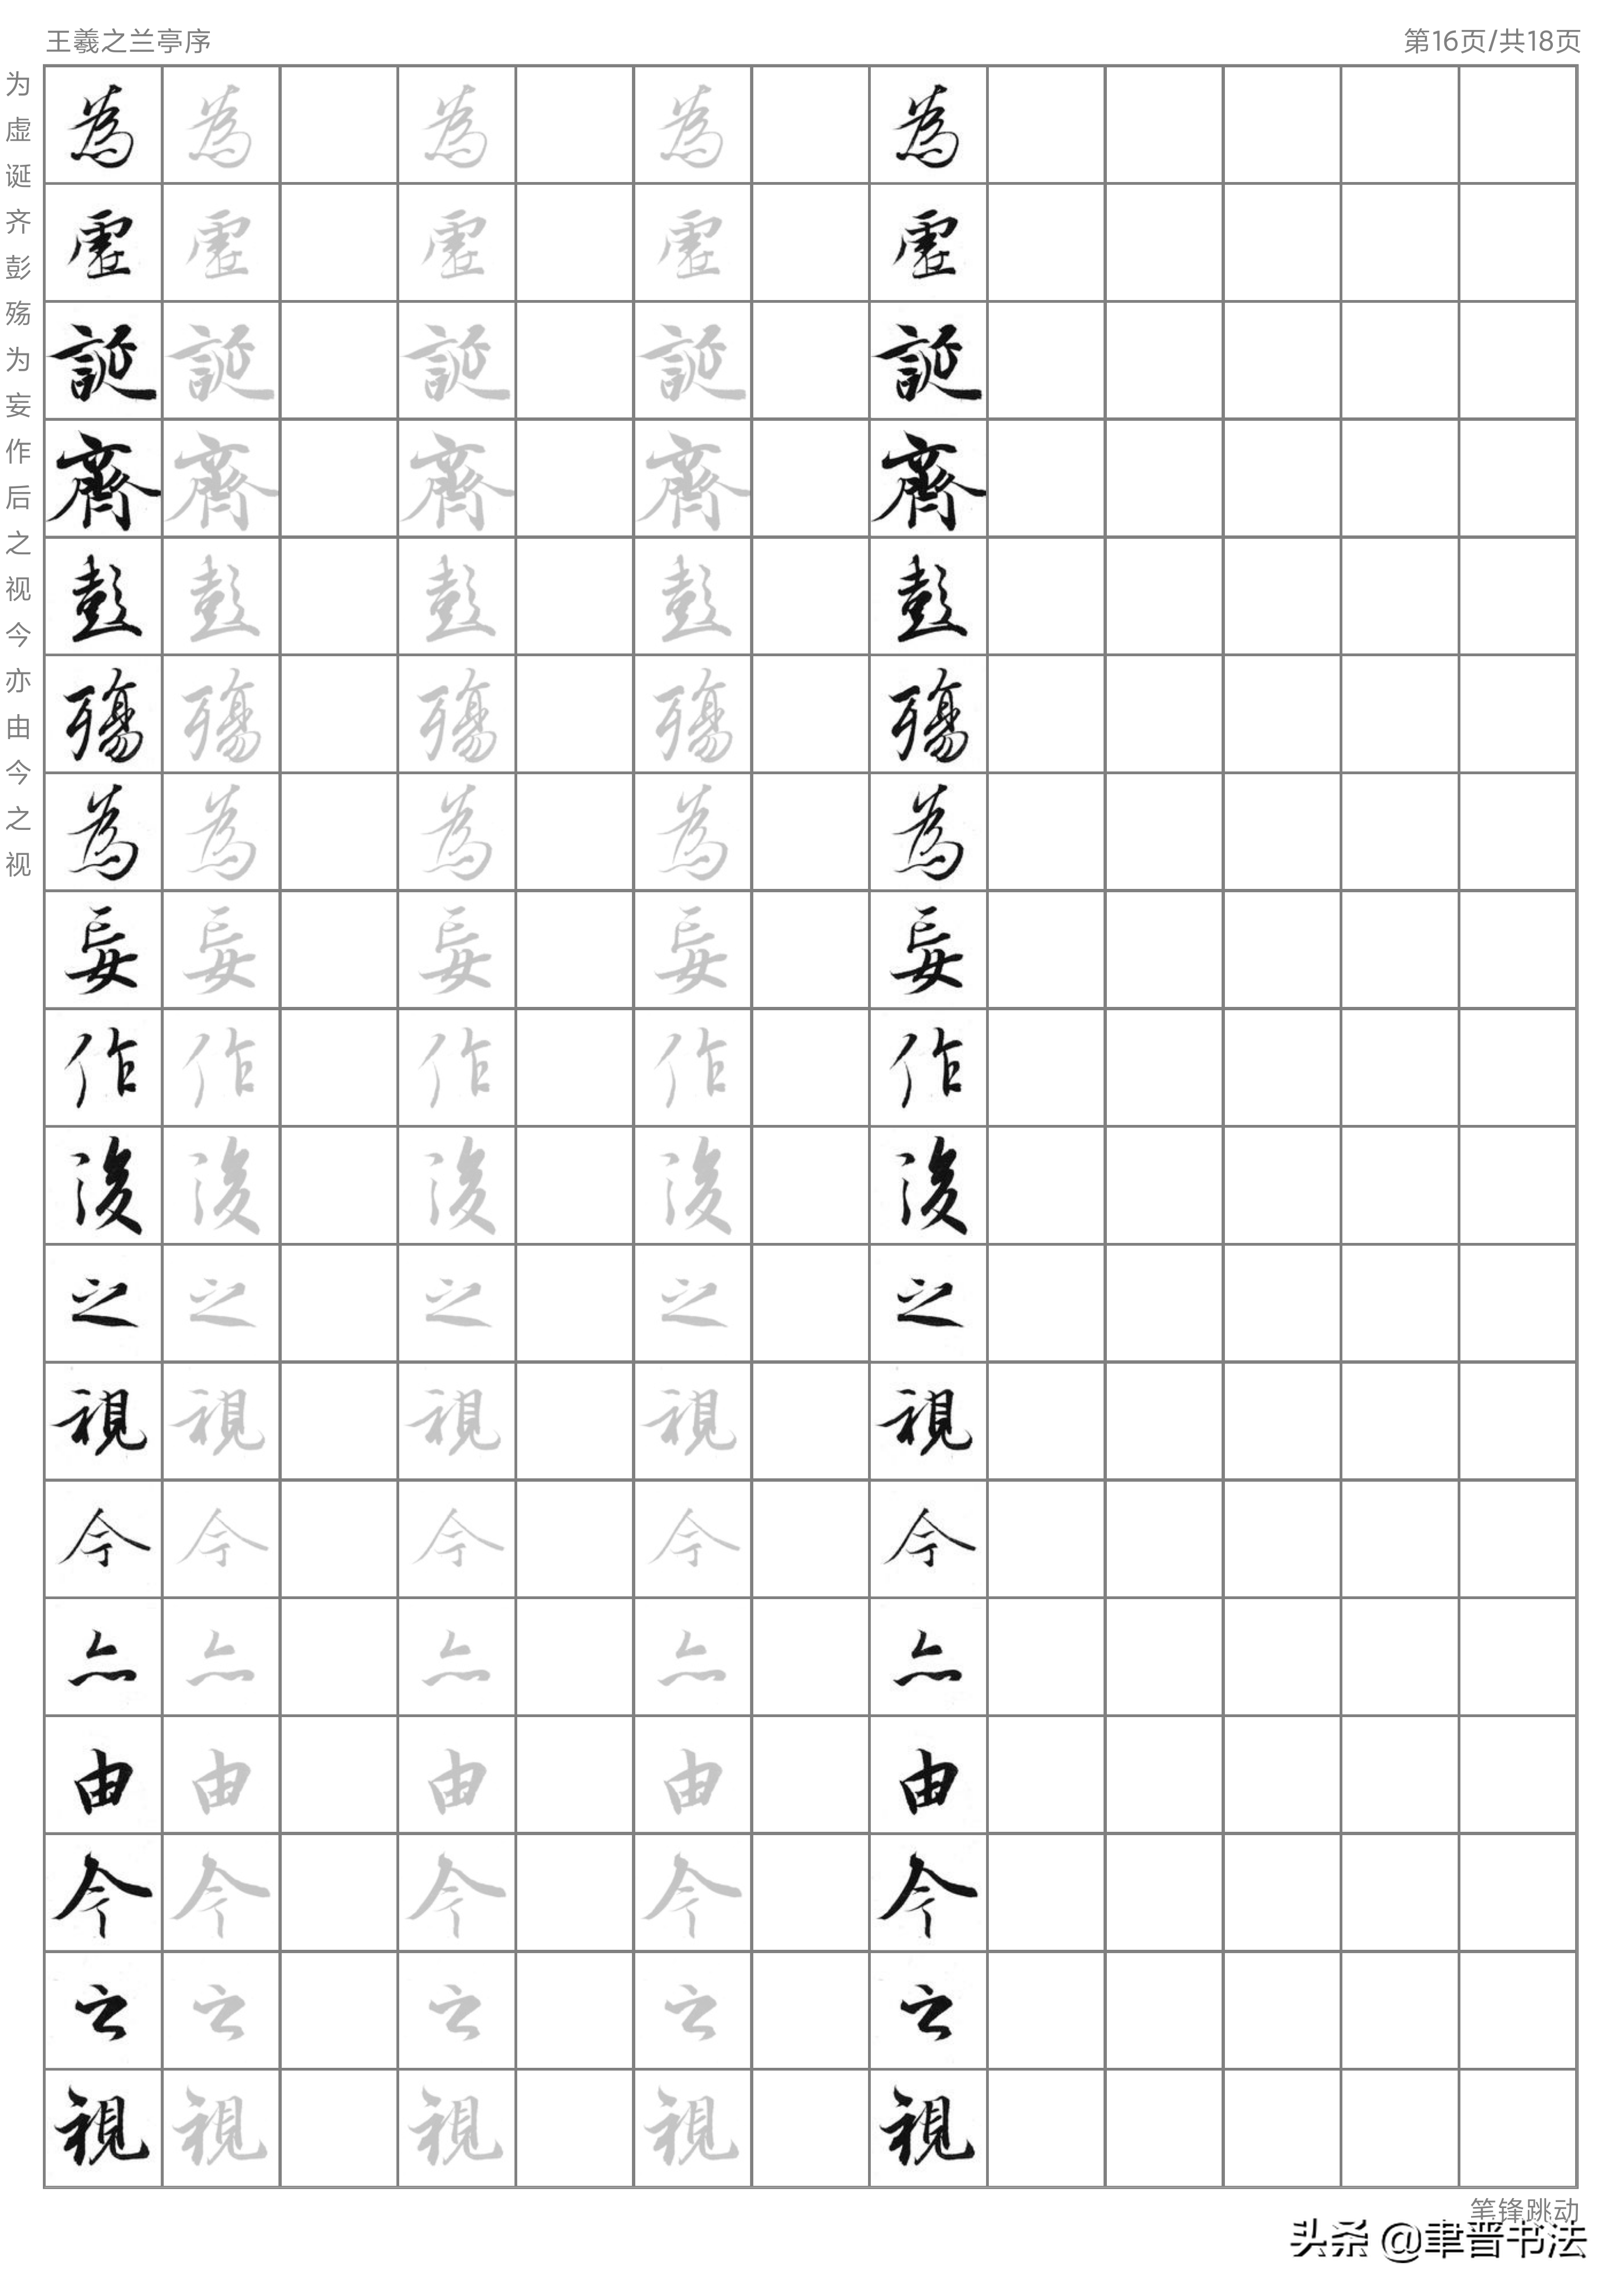 王羲之兰亭序
第16页/共18页
为 為 為 為 為 為
虚 虛 虛 虛 虛 虛
诞 誕 誕 誕 誕 誕
齐 齊 齊 齊 齊 齊
彭 彭 彭 彭 彭 彭
殇 殤 殤 殤 殤 殤
为 為 為 為 為 為
妄 妄 妄 妄 妄 妄
作 作 作 作 作 作
后 後 後 後 後 後
之 之 之 之 之 之
视 視 視 視 視 視
今 今 今 今 今 今
亦 亦 亦 亦 亦 亦
由 由 由 由 由 由
今 今 今 今 今 今
之 之 之 之 之 之
视 視 視 視 視 視
笔锋跳动
头条 @聿晋书法